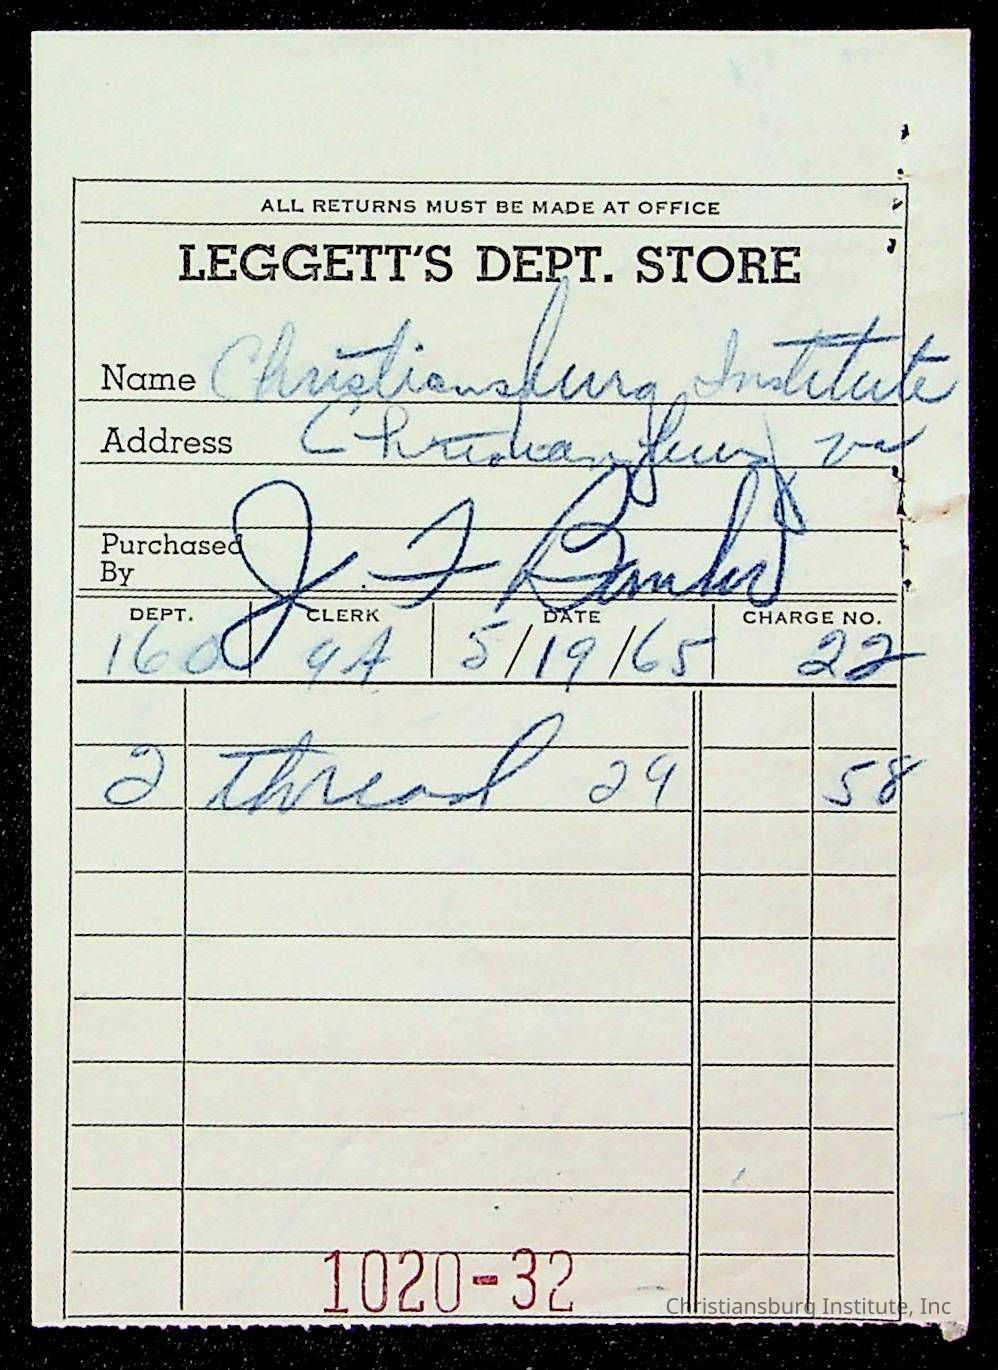 ALL RETURNS MUST BE MADE AT OFFICE
LEGGETT'S DEPT. STORE
Name Christiansburg Institute
Address Christiansburg Va
Purchased By J. F. Banks
DEPT. CLERK DATE CHARGE NO.
160 9A 5/19/65 22
2 thread 29 58
1020-32
Christiansburg Institute, Inc